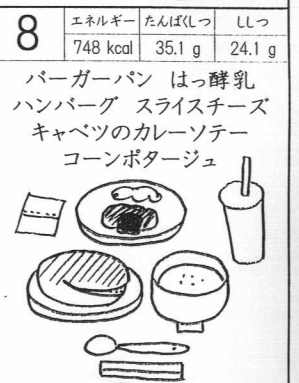 8
エネルギー たんぱくしつ ししつ
748 kcal 35.1 g 24.1 g
バーガーパン はっ酵乳
ハンバーグ スライスチーズ
キャベツのカレーソテー
コーンポタージュ